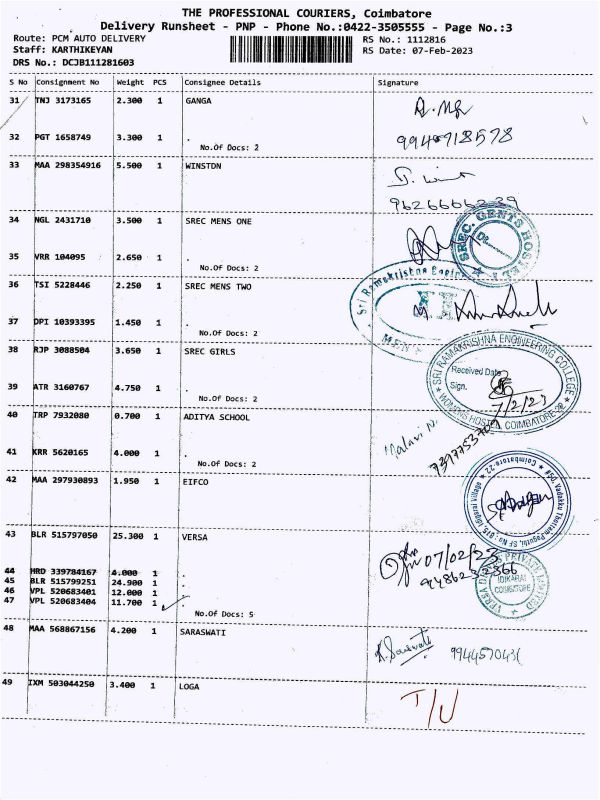 THE PROFESSIONAL COURIERS, Coimbatore
Delivery Runsheet - PNP - Phone No.:0422-3505555 - Page No.:3
Route: PCM AUTO DELIVERY
RS No.: 1112816
Staff: KARTHIKEYAN
RS Date: 07-Feb-2023
DRS No.: DCJB111281603
S No Consignment No Weight PCS Consignee Details Signature
31 TNJ 3173165 2.300 1 GANGA
32 PGT 1658749 3.300 1 .
No.Of Docs: 2
33 MAA 298354916 5.500 1 WINSTON
34 NGL 2431710 3.500 1 SREC MENS ONE
SREC. GENTS HOSTEL
35 VRR 104095 2.650 1 .
No.Of Docs: 2
36 TSI 5228446 2.250 1 SREC MENS TWO
Sri Ramakrishna Engine
II
MEN
37 DPI 10393395 1.450 1 .
No.Of Docs: 2
38 RJP 3088504 3.650 1 SREC GIRLS
SRI RAMAKRISHNA ENGINEERING COLLEGE
Received Date
Sign.
WOMENS HOSTEL COIMBATORE-22
39 ATR 3160767 4.750 1 .
No.Of Docs: 2
40 TRP 7932080 0.700 1 ADITYA SCHOOL
Malavi N.
41 KRR 5620165 4.000 1 .
No.Of Docs: 2
42 MAA 297930893 1.950 1 EIFCO
43 BLR 515797050 25.300 1 VERSA
07/02/23
44 HRD 339784167 4.000 1 .
45 BLR 515799251 24.900 1 .
46 VPL 520683401 12.000 1 .
47 VPL 520683404 11.700 1 .
No.Of Docs: 5
PRIVATE LIMITED
IDIKARAI
COIMBATORE
48 MAA 568867156 4.200 1 SARASWATI
K. Saraswati
49 IXM 503044250 3.400 1 LOGA
T/U